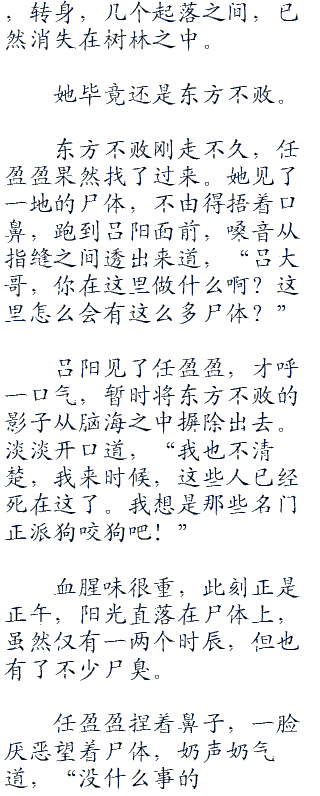 ，转身，几个起落之间，已
然消失在树林之中。
她毕竟还是东方不败。
东方不败刚走不久，任
盈盈果然找了过来。她见了
一地的尸体，不由得捂着口
鼻，跑到吕阳面前，嗓音从
指缝之间透出来道，“吕大
哥，你在这里做什么啊？这
里怎么会有这么多尸体？”
吕阳见了任盈盈，才呼
一口气，暂时将东方不败的
影子从脑海之中摒除出去。
淡淡开口道，“我也不清
楚，我来时候，这些人已经
死在这了。我想是那些名门
正派狗咬狗吧！”
血腥味很重，此刻正是
正午，阳光直落在尸体上，
虽然仅有一两个时辰，但也
有了不少尸臭。
任盈盈捏着鼻子，一脸
厌恶望着尸体，奶声奶气
道，“没什么事的